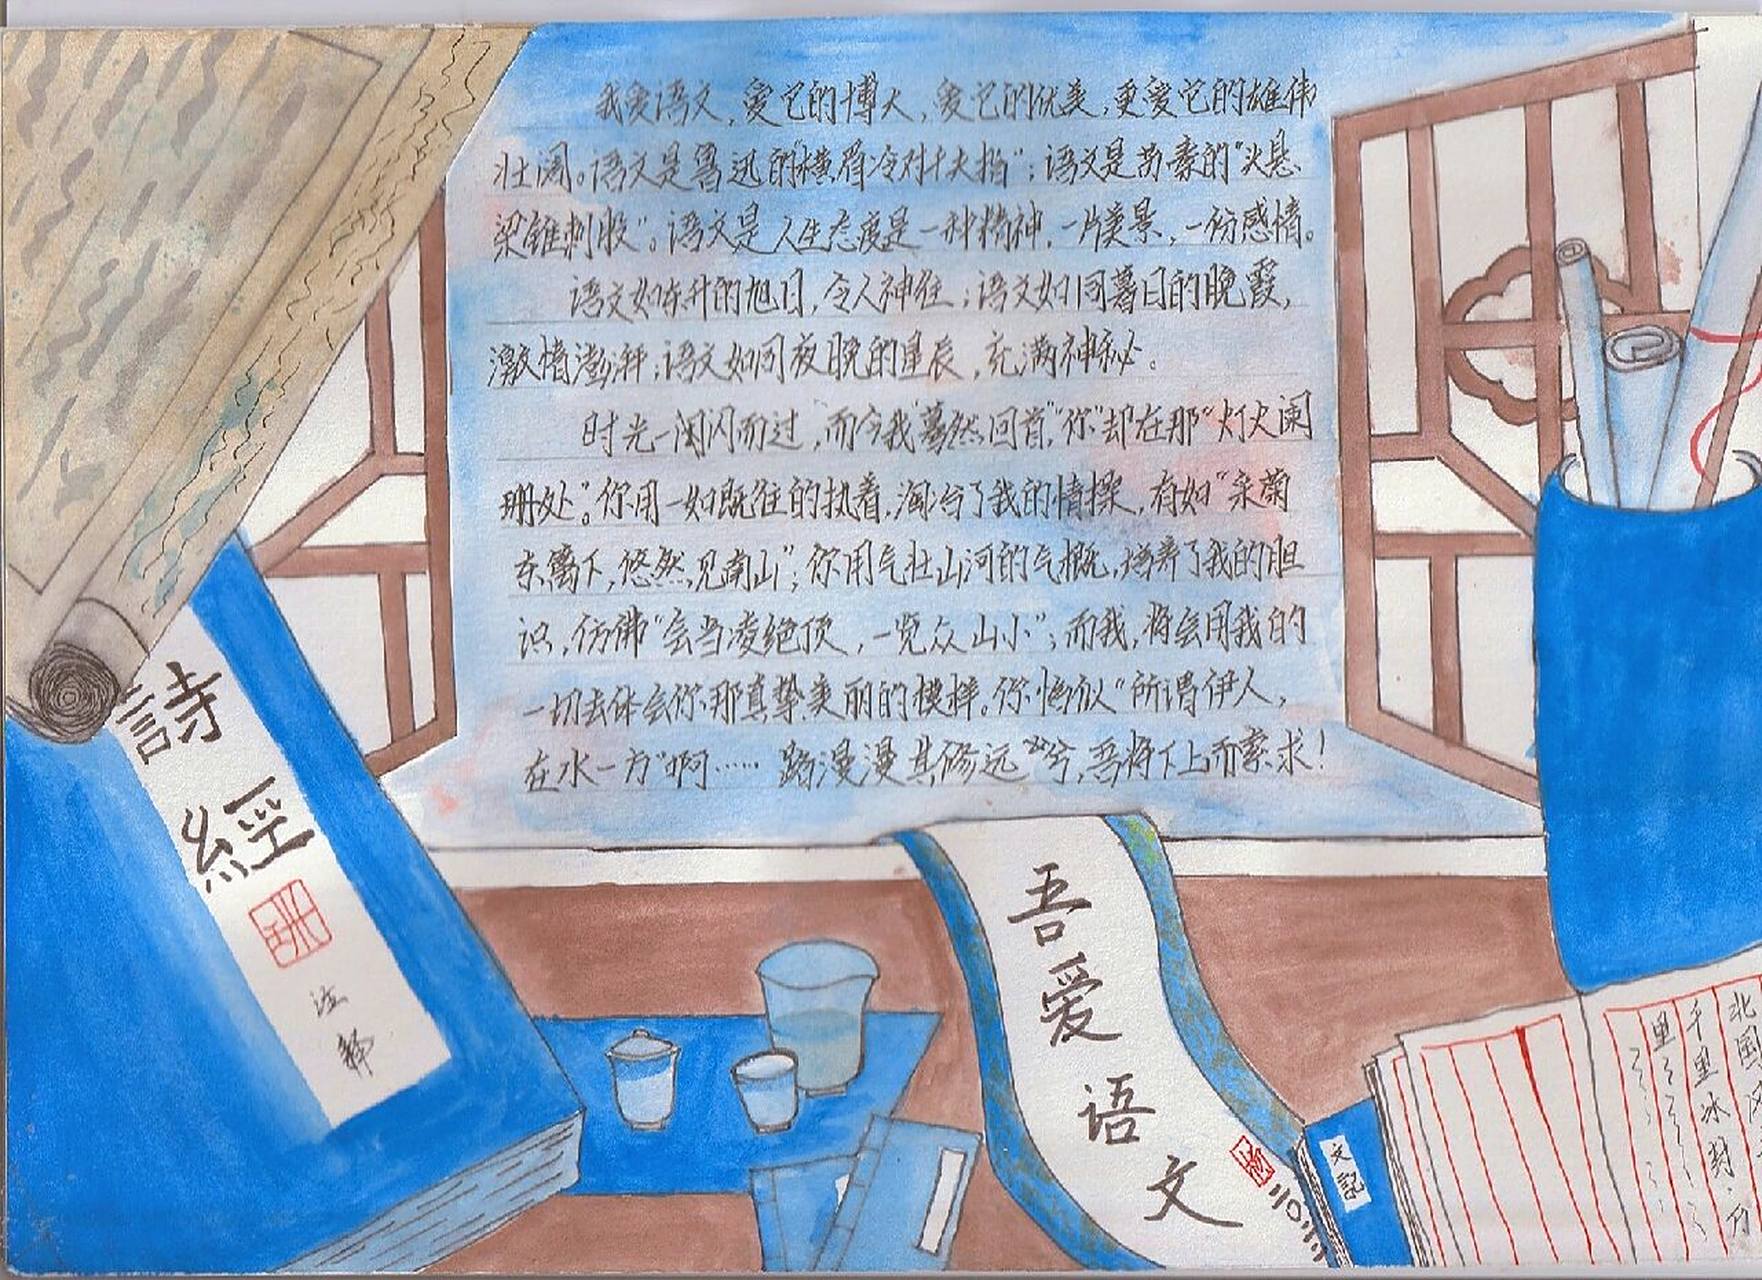 我爱语文，爱它的博大，爱它的优美，更爱它的雄伟
壮阔。语文是鲁迅的"横眉冷对千夫指"；语文是苏秦的"头悬
梁锥刺股"。语文是人生态度是一种精神，一片美景，一份感情。
语文如东升的旭日，令人神往；语文如同暮日的晚霞，
激情澎湃；语文如同夜晚的星辰，充满神秘。
时光一闪闪而过，而今我"蓦然回首"，"你"却在那"灯火阑
珊处"。你用一如既往的执着，淘冶了我的情操，有如"采菊
东篱下，悠然见南山"；你用气壮山河的气概，培养了我的胆
识，仿佛"会当凌绝顶，一览众山小"；而我，将会用我的
一切去体会你那真挚美丽的模样。你恰似"所谓伊人，
在水一方"啊……路漫漫其修远"兮，吾将下上而索求！
詩經
注
释
吾爱语文
二〇一三
文記
北国风
千里冰封·万
里